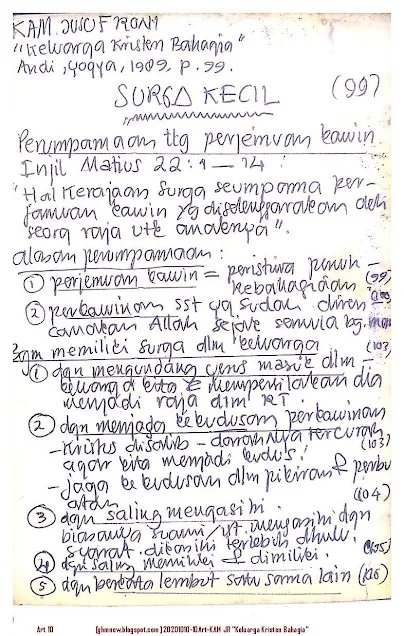 KAM. JUSUF RONI
"Keluarga Kristen Bahagia"
Andi, Yogya, 1989, p. 99.
SURGA KECIL (99)
Perumpamaan ttg perjamuan kawin
Injil Matius 22:1-14:
"Hal Kerajaan Surga seumpama per-
jamuan kawin yg diselenggarakan oleh
seorg raja utk anaknya".
alasan perumpamaan:
① perjamuan kawin = peristiwa penuh -
kebahagiaan (99)
② perkawinan sst yg sudah diren-
canakan Allah sejak semula bg.
memiliki surga dlm keluarga (103)
① dgn mengundang Yesus masuk dlm -
keluarga kita & mempersilakan dia
menjadi raja dlm RT.
② dgn menjaga kekudusan perkawinan
- Kristus disalib - darahnya tercurah (103)
agar kita menjadi kudus!
- Jaga kekudusan dlm pikiran & perbu
atan (104)
③ dgn saling mengasihi.
biasanya suami/ mengasihi dgn
syarat. dikasihi terlebih dahulu.
④ dgn saling memiliki & dimiliki. (105)
⑤ dgn berkata lembut satu sama lain (106)
Art 10 (jhmnew.blogspot.com) 20201010-10Art-KAM JR "Keluarga Kristen Bahagia"